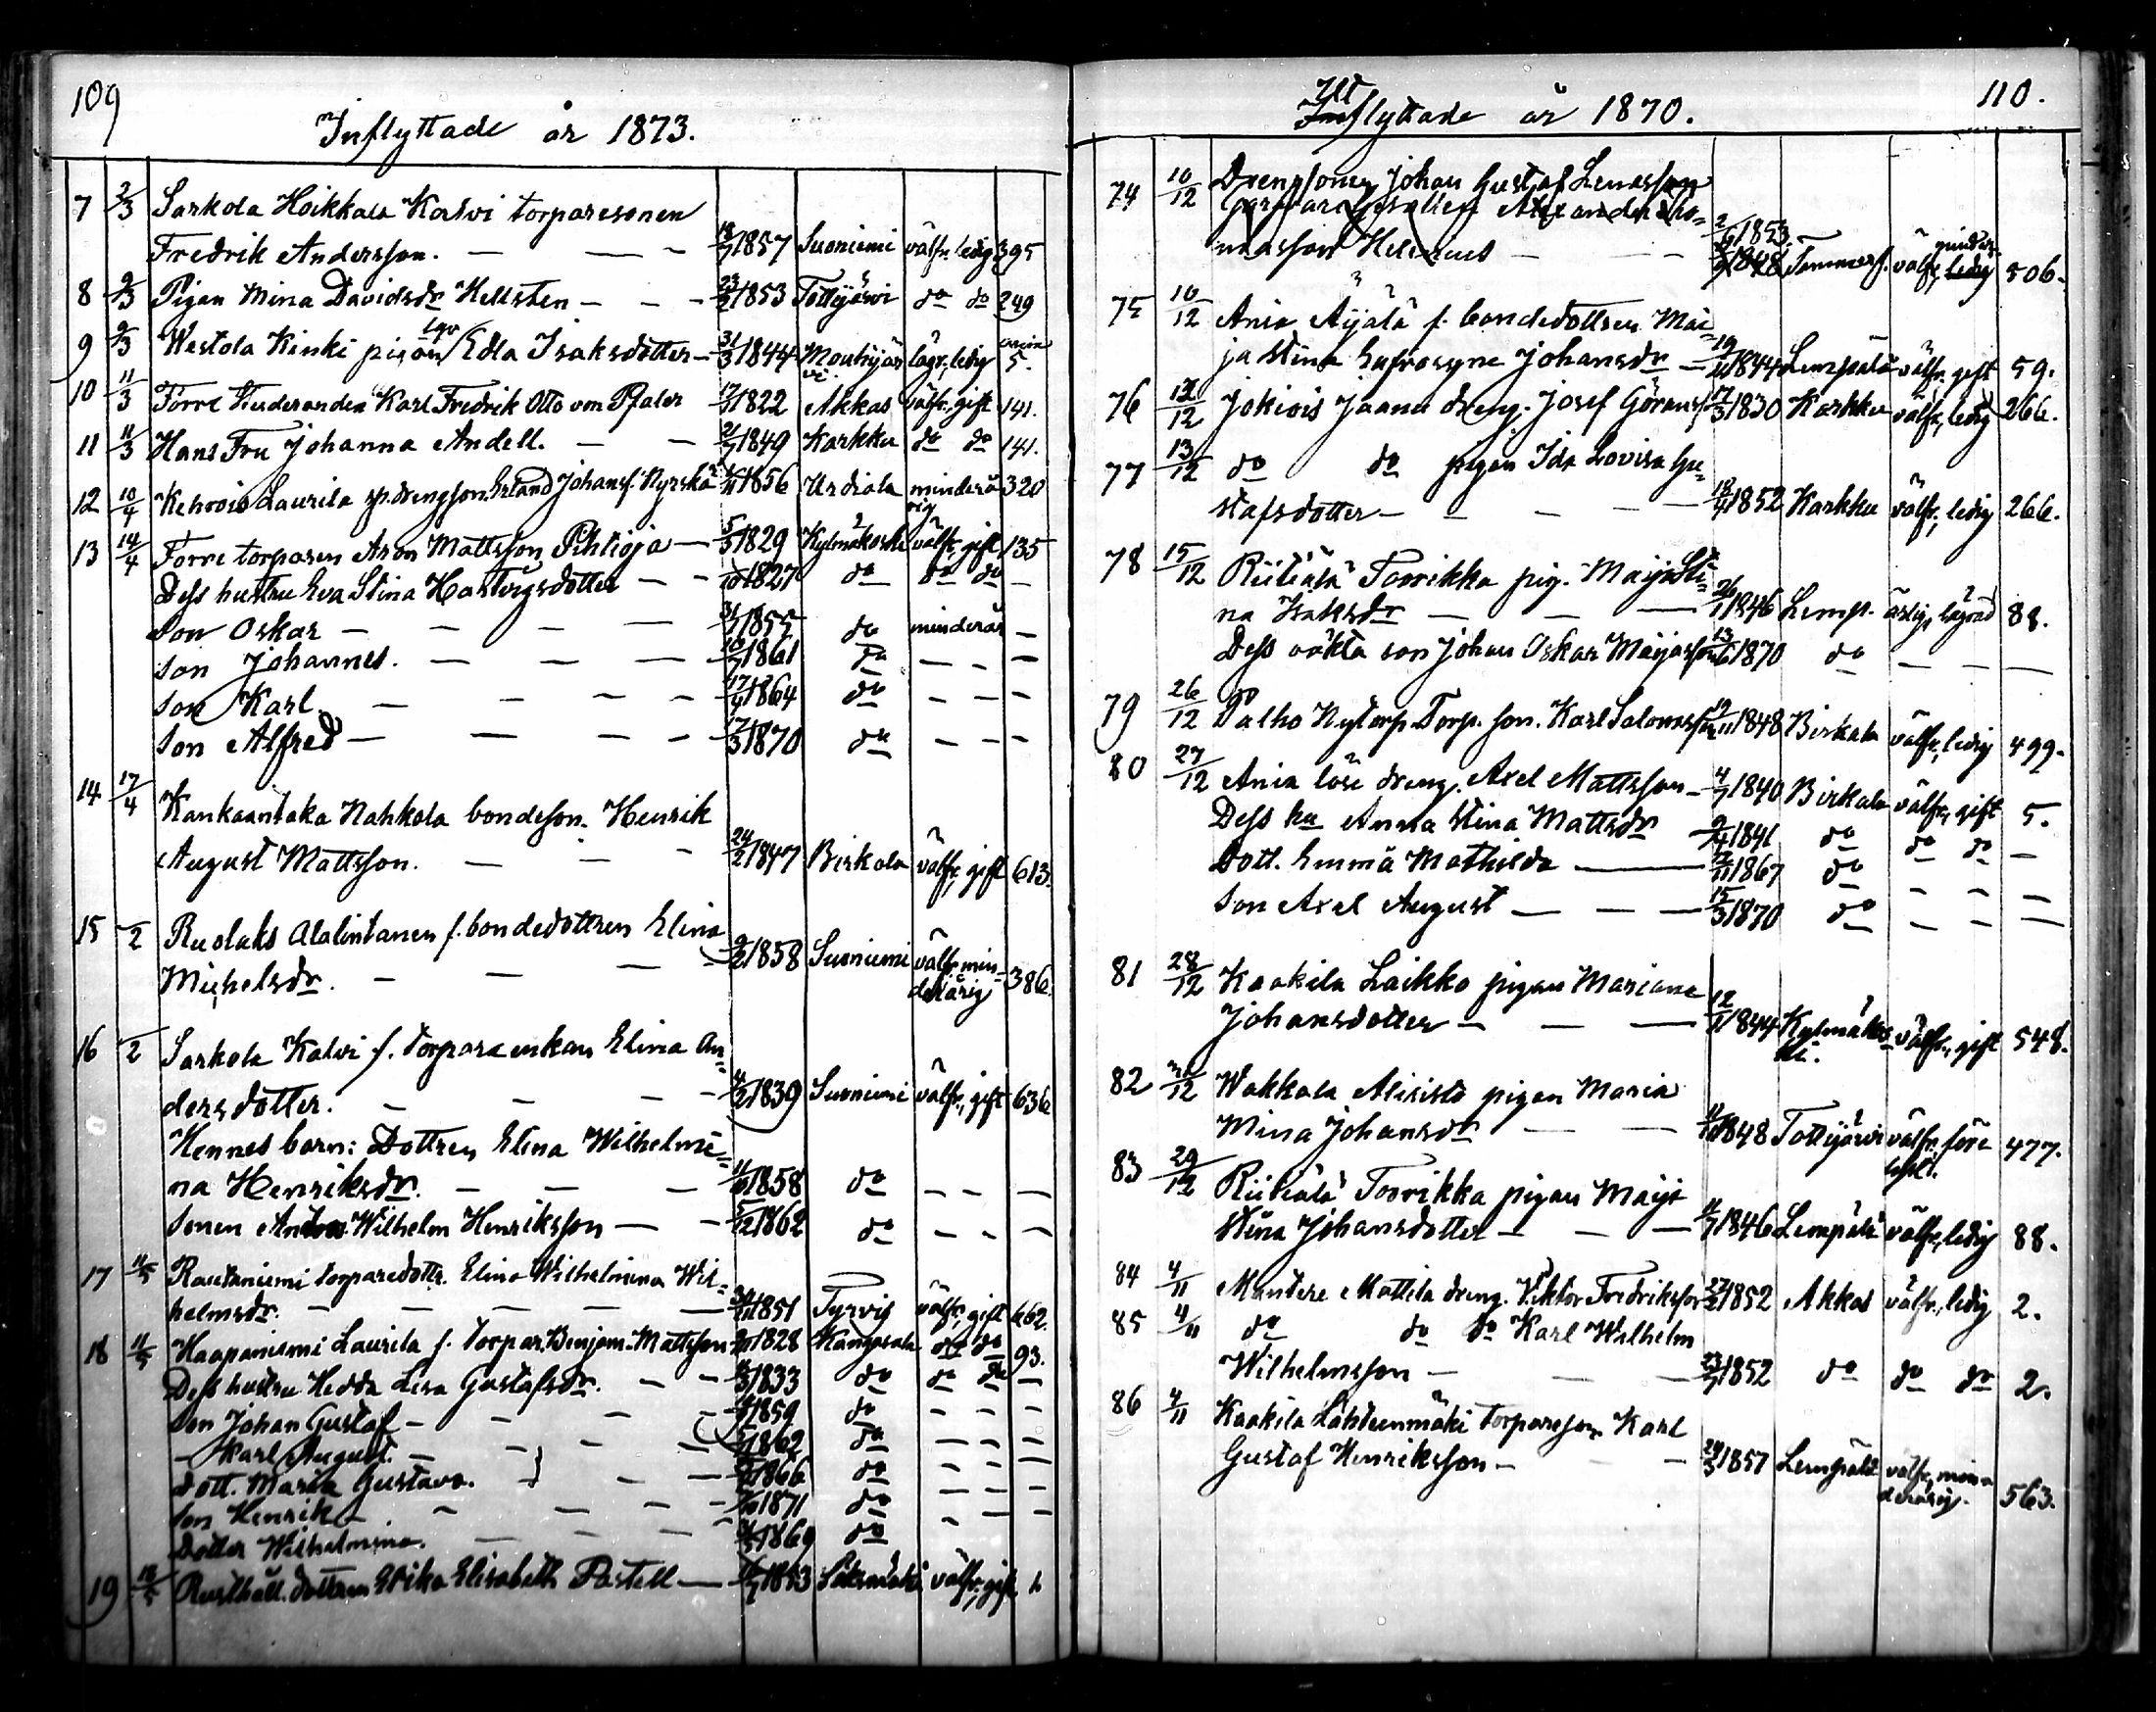 109
Inflyttade år 1873.
7 2/3 Sarkola Hoikkala Korvi torparesonen
Fredrik Andersson. — — — 18/7 1857 Suoniemi välfr. ledig 395
8 9/3 Pigan Mina Davidsdr Hellsten — — — 23/2 1853 Tottijärvi do do 249
9 9/3 Westola Kinki pigan Edla Isaksdotter — 31/3 1844 Mouhijär lägr. ledig 5.
vi.
10 11/3 Förre Studeranden Karl Fredrik Otto von Pfaler 17/3 1822 Akkas välfr. gift 141.
11 11/3 Hans Fru Johanna Andell. — — 21/7 1849 Karkku do do 141.
12 10/4 Kehrois Laurila sp. drengson Erland Johansf. Nyrskä 1856 Urdiala minderå 320
rig
13 14/4 Förre torparen Aron Mattsson Pihtioja — 5/3 1829 Kylmäkoski välfr. gift 135
Dess hustru Eva Stina Hartvigsdotter — — 1827 do do do —
Son Oskar — — — — 31/ 1855 do minderår —
son Johannes. — — — 10/7 1861 do — — —
son Karl. — — — — 17/9 1864 do — — —
son Alfred — — — — 17/3 1870 do — — —
14 17/4 Kankaantaka Nahkola bondeson. Henrik
August Mattsson. — — — 24/2 1847 Birkala välfr. gift 613.
15 /2 Ruolaks Alalintanen f. bondedottren Elina
Michelsdr. — — — 9/2 1858 Suoniemi välfr. min- 386.
derårig
16 /2 Sarkola Kalvi f. torpareenkan Elina An-
dersdotter. — — — — 4/2 1839 Suoniemi välfr., gift 636
Hennes barn: Dottren Elina Wilhelmi-
na Henriksdr. — — — 11/10 1858 do — — —
Sonen Anton Wilhelm Henriksson — — 5/12 1862 do — — —
17 11/5 Rautaniemi torparedottr. Elina Wilhelmina Wil-
helmsdr. — — — — 1851 Tyrvis välfr., gift 662.
18 11/5 Haapaniemi Laurila f. torpar. Benjam. Mattsson 1828 Kangasala do do 93.
Dess hustru Hedda Lisa Gustafsdr. — — 1833 do do do —
Son Johan Gustaf — — — — 1859 do — — —
— Karl August. — — — — 1862 do — — —
dott. Maria Gustava. — — 1866 do — — —
Son Henrik — — — — 1871 do — — —
Dotter Wilhelmina. — — — 1869 do
19 18/5 Rusthåll. dottren Erika Elisabeth Pastell — 1853 Saksmäki välfr., gift 1
110.
Utflyttade år 1870.
74 10/12 Drengsonen Johan Gustaf Lenasson
Garfvaregesällen Alexander Tho-
masson Helenius — — — 2/6 1853.
1848 Tammerf. välfr. ledig minder. 506.
75 10/12 Ania Äijälä f. bondedottren Mai-
ja Stina Eufrosyne Johansdr — 19/ 1844 Lempälä välfr. gift 59.
76 12/12 Jokiois Jaanu dreng. Josef Göransf. 17/3 1830 Karkku välfr., ledig 266.
77 13/12 do do pigan Ida Lovisa Gu-
stafsdotter — — — — 18/4 1852 Karkku välfr., ledig 266.
78 15/12 Riitiälä Toorikka pig. Maija Sti-
na Isaksdr — — — 26/1 1846 Lemp. ärlig, lägrad 88.
Dess oäkta son Johan Oskar Maijasson 13/6 1870 do — — —
79 26/12 Palho Nytorp. Torp. son. Karl Salomsson 19/11 1848 Birkala välfr., ledig 499.
80 27/12 Ania löse dreng. Axel Mattsson — 4/7 1840 Birkala välfr., gift 5.
Dess hu Anna Stina Mattsdr 9/4 1841 do do do —
Dott. Emma Mathilda — 1867 do — — —
Son Axel August — — — 15/3 1870 do — — —
81 28/12 Kaakila Laikko pigan Mariana
Johansdotter — — — 12/ 1844 Kylmäkos- välfr., gift 548.
ki.
82 /12 Wakkala Alisisto pigan Maria
Mina Johansdr — — 1848 Tottijärvi välfr. före 477.
83 29/12 Riitiälä Toorikka pigan Maija
Stina Johansdotter — — — 1846 Lempälä välfr., ledig 88.
84 4/11 Mantere Mattila dreng. Viktor Fredriksson 27/2 1852 Akkas välfr., ledig 2.
85 4/11 do do do Karl Wilhelm
Wilhelmsson — — — 23/7 1852 do do do 2.
86 4/11 Kaakila Lähteenmäki torpareson Karl
Gustaf Henriksson — — 24/3 1857 Lempälä välfr., min- 563.
derårig.